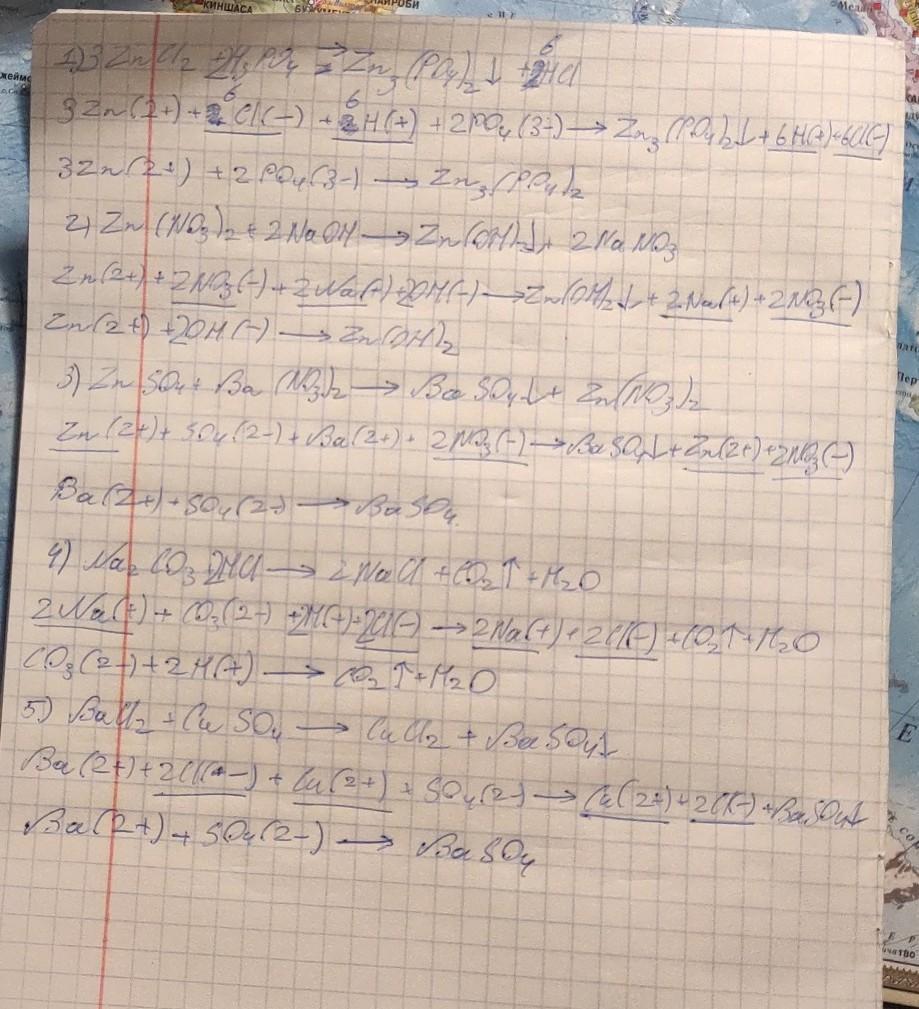 КИНШАСА
НАЙРОБИ
1) 3ZnCl2 + 2H3PO4 ⇄ Zn3(PO4)2↓ + 6HCl
3Zn(2+) + 6Cl(-) + 6H(+) + 2PO4(3-) → Zn3(PO4)2↓ + 6H(+) + 6Cl(-)
3Zn(2+) + 2PO4(3-) → Zn3(PO4)2
2) Zn(NO3)2 + 2NaOH → Zn(OH)2↓ + 2NaNO3
Zn(2+) + 2NO3(-) + 2Na(+) + 2OH(-) → Zn(OH)2↓ + 2Na(+) + 2NO3(-)
Zn(2+) + 2OH(-) → Zn(OH)2
3) ZnSO4 + Ba(NO3)2 → BaSO4↓ + Zn(NO3)2
Zn(2+) + SO4(2-) + Ba(2+) + 2NO3(-) → BaSO4↓ + Zn(2+) + 2NO3(-)
Ba(2+) + SO4(2-) → BaSO4
4) Na2CO3 + 2HCl → 2NaCl + CO2↑ + H2O
2Na(+) + CO3(2-) + 2H(+) + 2Cl(-) → 2Na(+) + 2Cl(-) + CO2↑ + H2O
CO3(2-) + 2H(+) → CO2↑ + H2O
5) BaCl2 + CuSO4 → CuCl2 + BaSO4↓
Ba(2+) + 2Cl(-) + Cu(2+) + SO4(2-) → Cu(2+) + 2Cl(-) + BaSO4↓
Ba(2+) + SO4(2-) → BaSO4